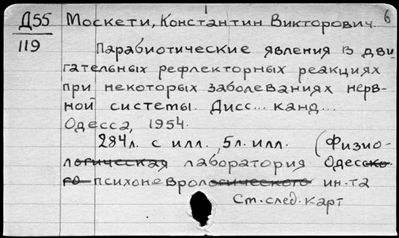 Д55 Москети, Константин Викторович. 6
119
Парабиотические явления в дви-
гательных рефлекторных реакциях
при некоторых заболеваниях нерв-
ной системы. Дисс... канд...
Одесса, 1954.
284л. с илл., 5л. илл. (Физио-
логическая лаборатория Одесско-
го психоневрологического ин-та
См. след. карт